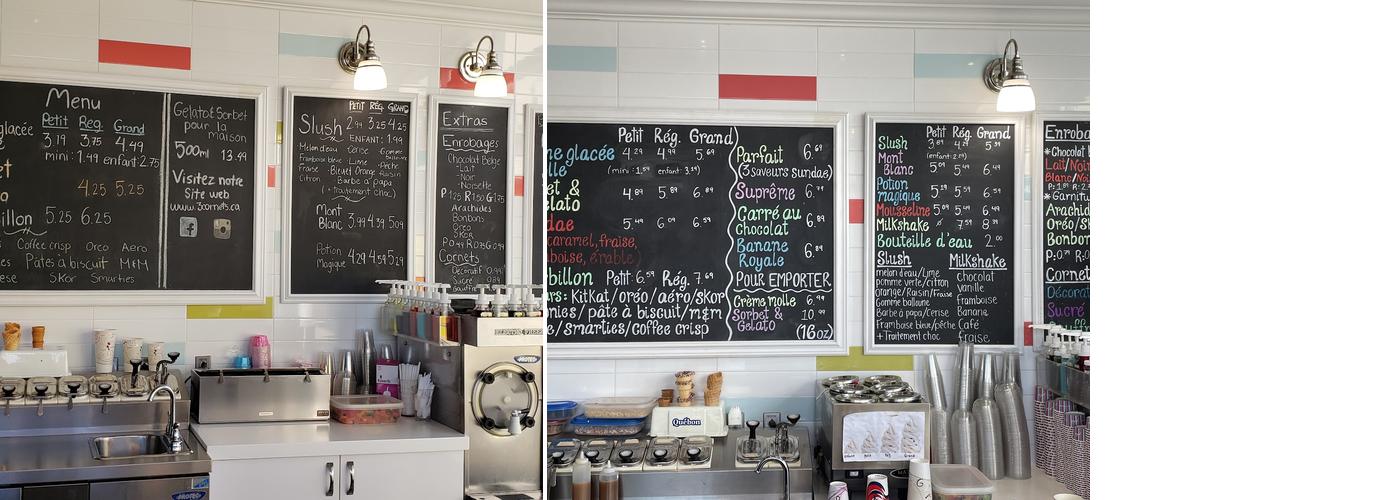 Menu
Petit Reg. Grand
glacée 3.19 3.75 4.49
mini: 1.49 enfant: 2.75
4.25 5.25
illon 5.25 6.25
Coffee crisp Oreo Aero
Pâtes à biscuit M&M
Skor Smarties
Gelato & Sorbet
pour la
maison
500ml 13.99
Visitez notre
Site web
Petit Rég. Grand
Slush 2.99 3.25 4.25
ENFANT: 1.99
Melon d'eau Cerise Gomme
Framboise bleue Lime Pêche
Fraise Bleuet Orange Raisin
Citron Barbe à papa
(+Traitement choc)
Mont
Blanc 3.99 4.39 5.09
Potion
Magique 4.29 4.59 5.29
Extras
Enrobages
Chocolat Belge
-Lait
-Noir
-Noisette
Arachides
Bonbons
Oreo
Skor
Cornets
Petit Rég. Grand
ne glacée 4.29 4.99 5.69
(mini: 1.59 enfant: 3.39)
et &
elato 4.89 5.89 6.89
dae 5.49 6.09 6.99
caramel, fraise,
boise, érable)
rbillon Petit: 6.59 Rég. 7.69
urs: KitKat/oréo/aéro/skor
nies/pâte à biscuit/m&m
e/smarties/coffee crisp
Parfait 6.69
(3 saveurs sundae)
Suprême 6.79
Carré au
Chocolat 6.89
Banane
Royale 6.89
POUR EMPORTER
Crème molle 6.99
Sorbet & 10.99
Gelato (16oz)
Petit Rég. Grand
Slush
Mont
Blanc
Potion
magique 5.29 5.59 6.59
Mousseline 5.09 5.49 6.49
Milkshake
Bouteille d'eau 2.00
Slush Milkshake
melon d'eau/Lime chocolat
pomme verte/citron vanille
Orange/Raisin/Fraise framboise
Gomme balloune Banane
Barbe à papa/Cerise Café
Framboise bleu/pêche fraise
+Traitement choc
Enroba
*Chocolat
Lait/Noi
Blanc/No
*Garnitu
Arachid
Oréo/Sk
Bonbon
Cornet
Décorat
Sucré
Québon